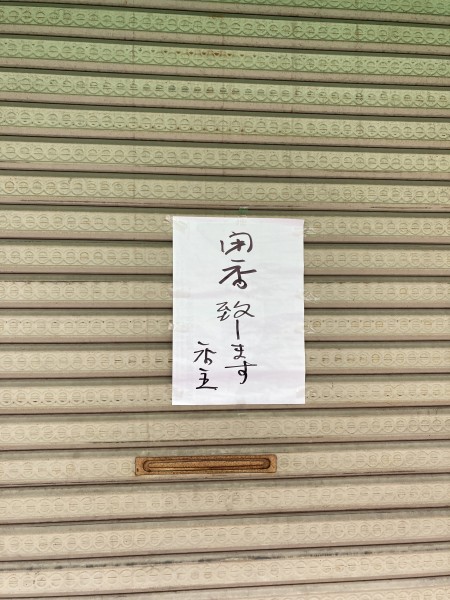 閉店致します
店主